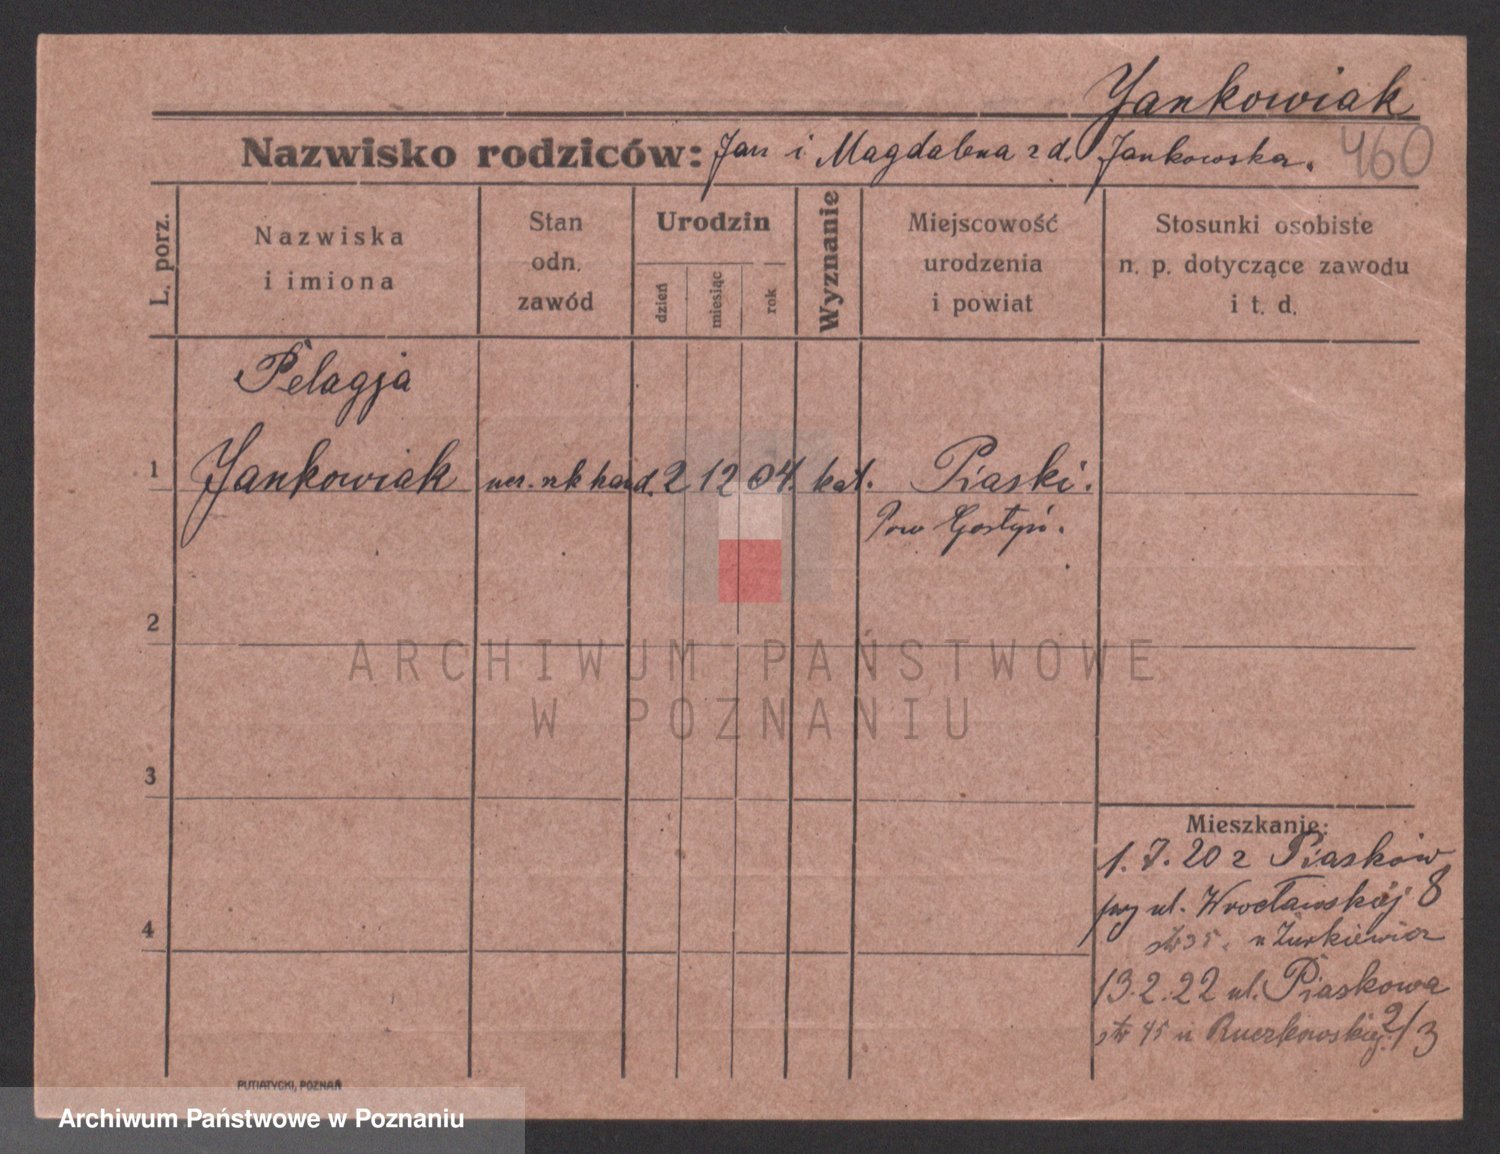 Jankowiak
Nazwisko rodziców: Jan i Magdalena z d. Jankowska.
460
L. porz.
Nazwiska
i imiona
Stan
odn.
zawód
Urodzin
dzień
miesiąc
rok
Wyznanie
Miejscowość
urodzenia
i powiat
Stosunki osobiste
n. p. dotyczące zawodu
i t. d.
Pelagja
1 Jankowiak ucz. hand. 2 12 04. kat. Piaski.
Pow Gostyń.
2
3
4
ARCHIWUM PAŃSTWOWE
W POZNANIU
Mieszkanie:
1.7.20 z Piasków
przy ul. Wrocławskiej 8
str 35. u Żurkiewicz
13.2.22 ul. Piaskowa
2/3
str 45 u Ruczkowskiej
PUTIATYCKI, POZNAŃ
Archiwum Państwowe w Poznaniu